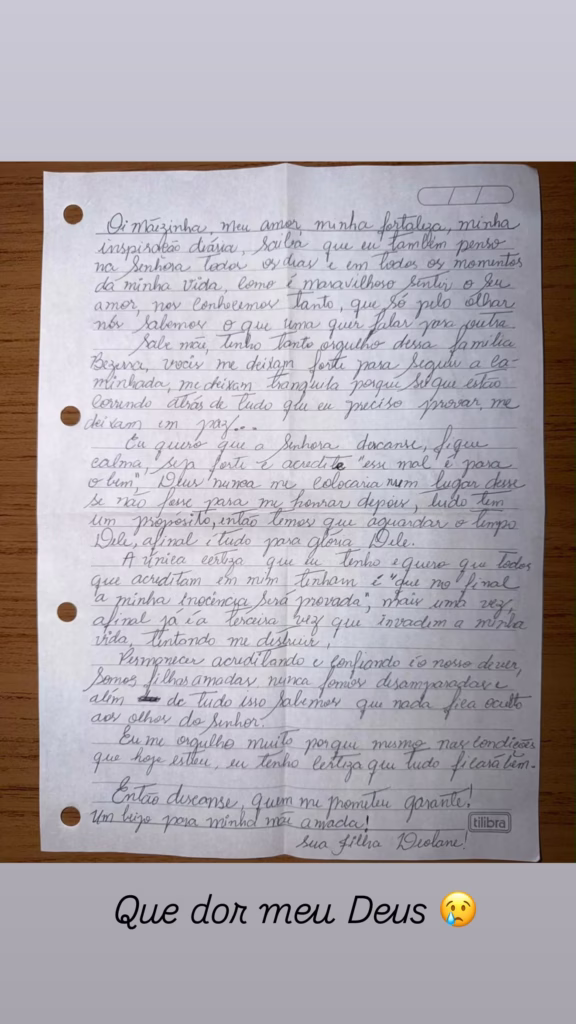 Oi mãezinha, meu amor, minha fortaleza, minha
inspiração diária, saiba que eu também penso
na Senhora todos os dias e em todos os momentos
da minha vida, como é maravilhoso sentir o seu
amor, nos conhecemos tanto, que só pelo olhar
nós sabemos o que uma quer falar para outra.
Sabe mãe, tenho tanto orgulho dessa família
Bezerra, vocês me deixam forte para seguir a ca-
minhada, me deixam tranquila porque sei que estão
correndo atrás de tudo que eu preciso provar, me
deixam em paz...
Eu quero que a Senhora descanse, fique
calma, seja forte e acredite "esse mal é para
o bem", Deus nunca me colocaria num lugar desse
se não fosse para me honrar depois, tudo tem
um proposito, então temos que aguardar o tempo
Dele, afinal é tudo para glória Dele.
A única certeza que eu tenho e quero que todos
que acreditam em mim tenham é "que no final
a minha inocência será provada", mais uma vez,
afinal já é a terceira vez que invadem a minha
vida, tentando me destruir.
Permanecer acreditando e confiando é o nosso dever,
somos filhas amadas nunca fomos desamparadas e
além de tudo isso sabemos que nada fica oculto
aos olhos do Senhor.
Eu me orgulho muito porque mesmo nas condições
que hoje estou, eu tenho certeza que tudo ficará bem.
Então descanse, quem me prometeu garante!
Um beijo para minha mãe amada!
tilibra
Sua filha Deolane!
Que dor meu Deus 😢